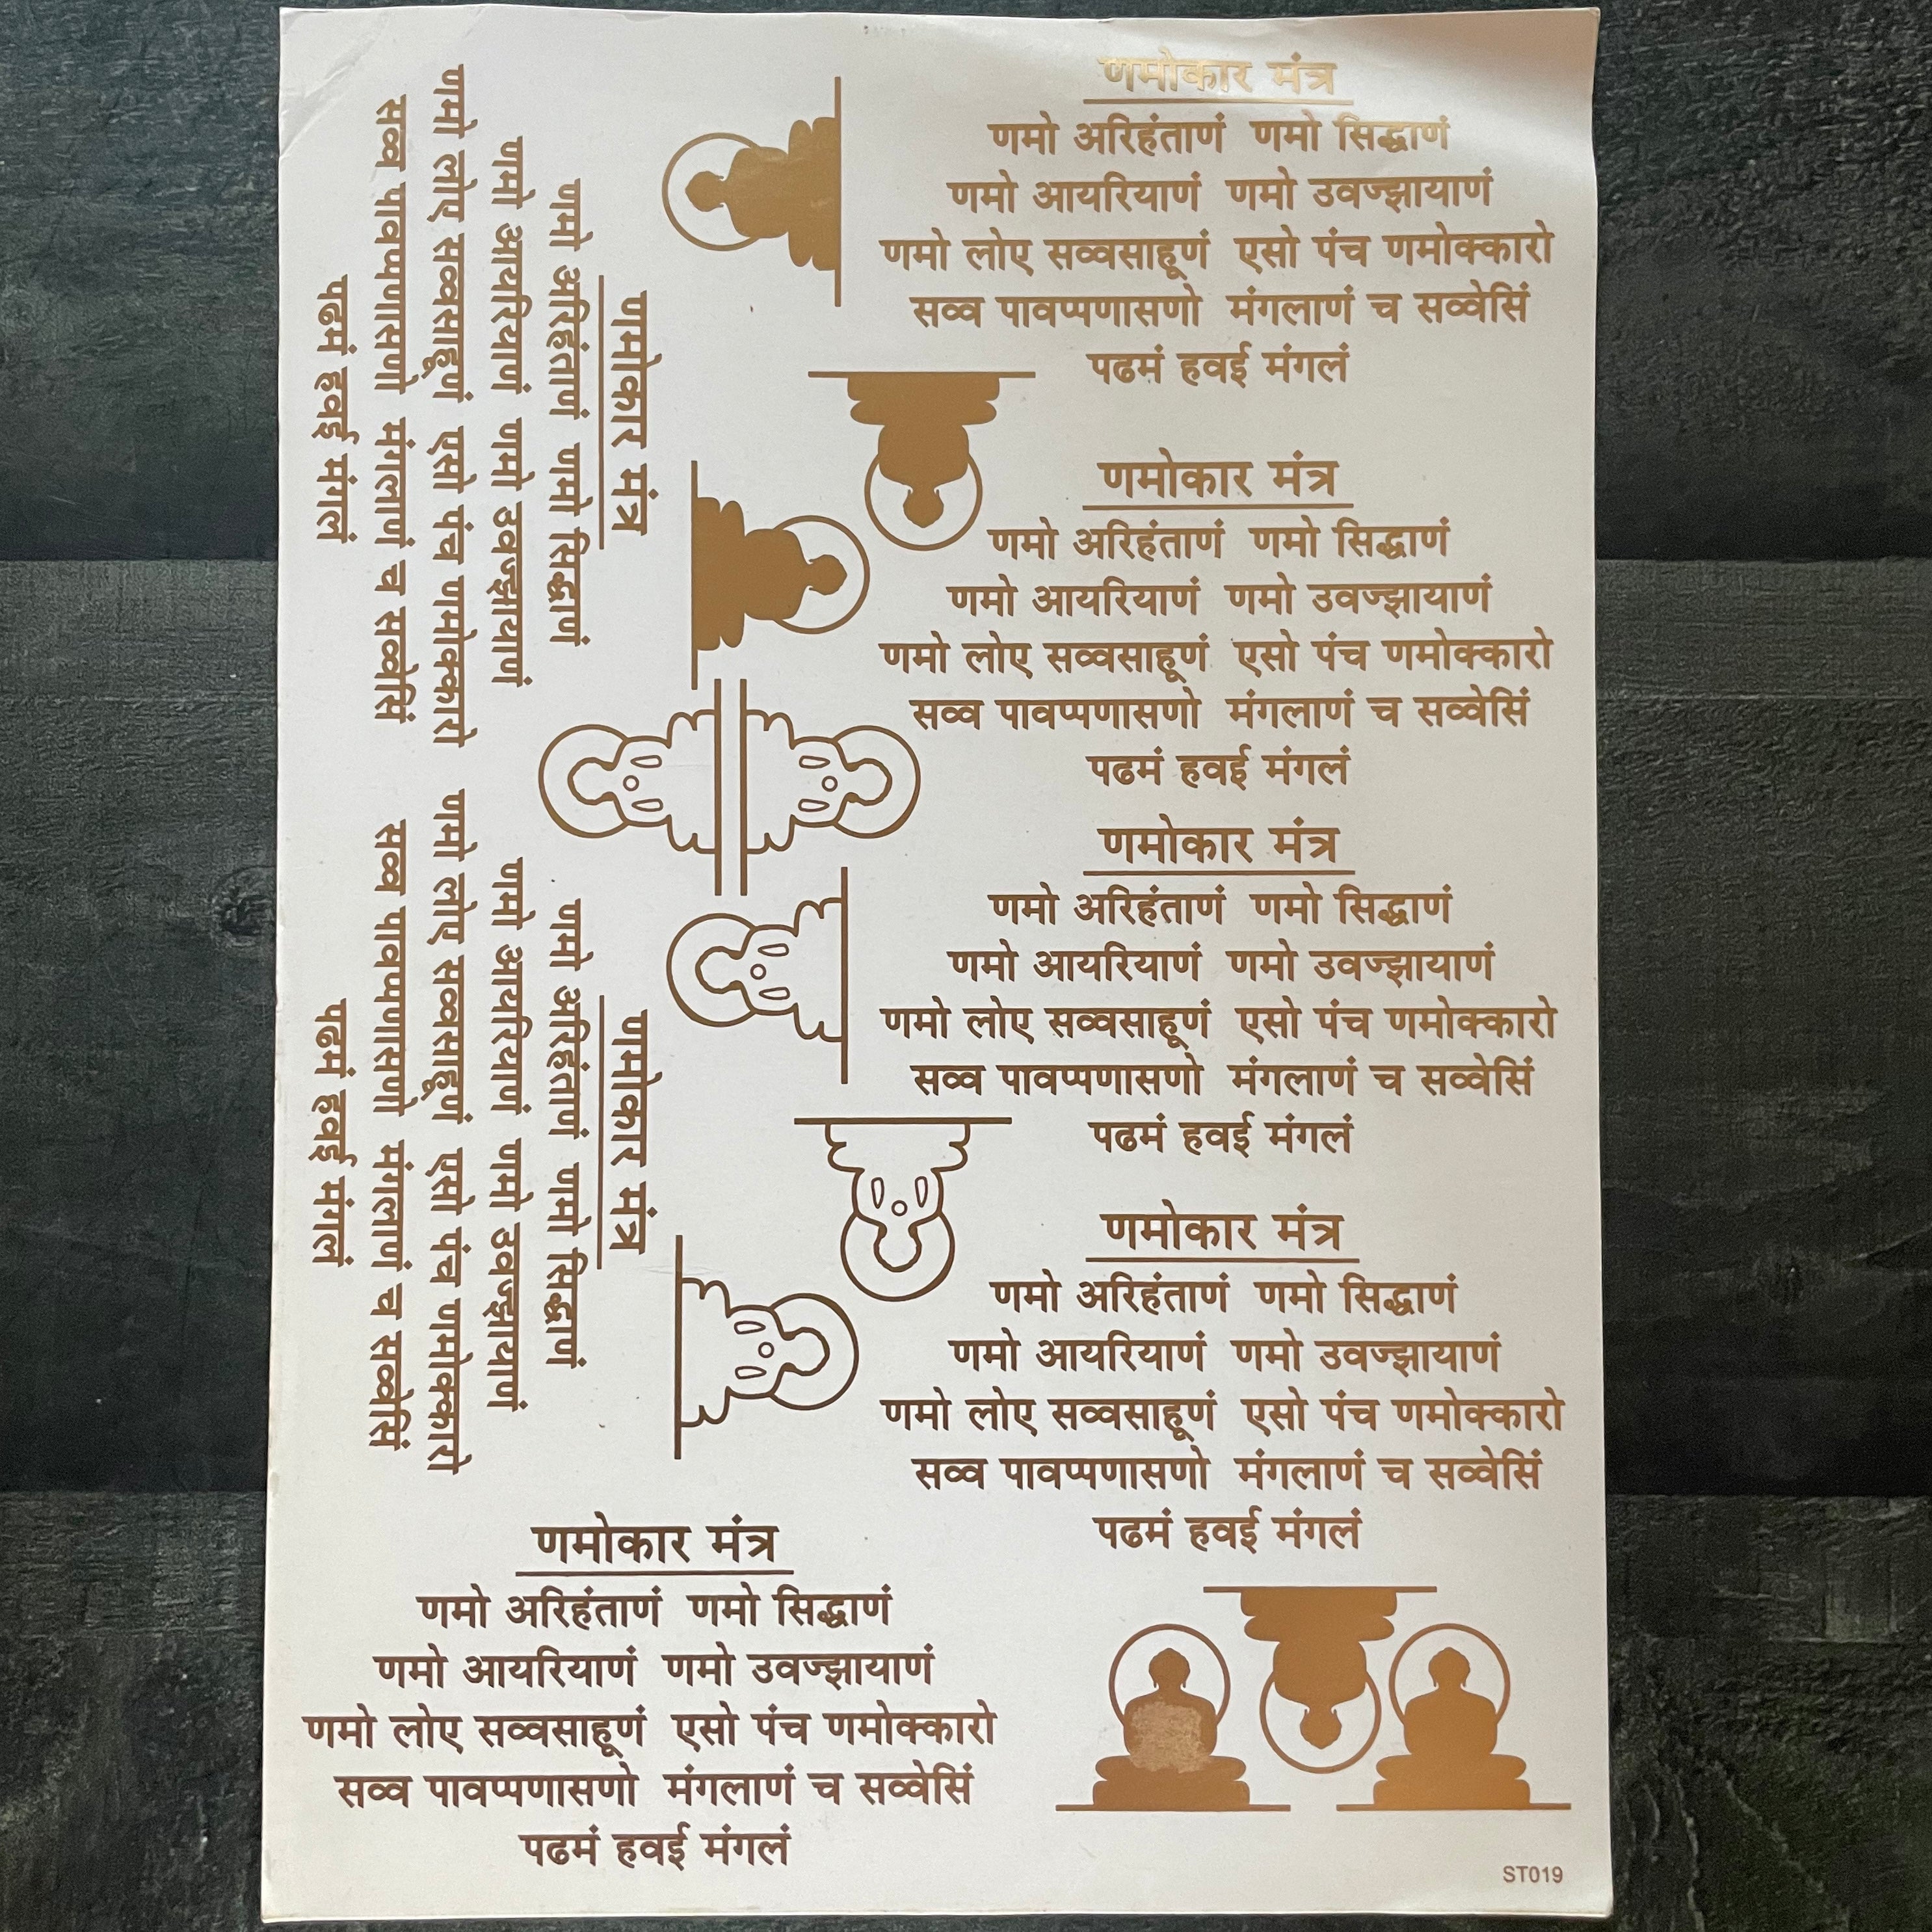 णमोकार मंत्र
णमो अरिहंताणं णमो सिद्धाणं
णमो आयरियाणं णमो उवज्झायाणं
णमो लोए सव्वसाहूणं एसो पंच णमोक्कारो
सव्व पावप्पणासणो मंगलाणं च सव्वेसिं
पढमं हवई मंगलं
णमोकार मंत्र
णमो अरिहंताणं णमो सिद्धाणं
णमो आयरियाणं णमो उवज्झायाणं
णमो लोए सव्वसाहूणं एसो पंच णमोक्कारो
सव्व पावप्पणासणो मंगलाणं च सव्वेसिं
पढमं हवई मंगलं
णमोकार मंत्र
णमो अरिहंताणं णमो सिद्धाणं
णमो आयरियाणं णमो उवज्झायाणं
णमो लोए सव्वसाहूणं एसो पंच णमोक्कारो
सव्व पावप्पणासणो मंगलाणं च सव्वेसिं
पढमं हवई मंगलं
णमोकार मंत्र
णमो अरिहंताणं णमो सिद्धाणं
णमो आयरियाणं णमो उवज्झायाणं
णमो लोए सव्वसाहूणं एसो पंच णमोक्कारो
सव्व पावप्पणासणो मंगलाणं च सव्वेसिं
पढमं हवई मंगलं
णमोकार मंत्र
णमो अरिहंताणं णमो सिद्धाणं
णमो आयरियाणं णमो उवज्झायाणं
णमो लोए सव्वसाहूणं एसो पंच णमोक्कारो
सव्व पावप्पणासणो मंगलाणं च सव्वेसिं
पढमं हवई मंगलं
णमोकार मंत्र
णमो अरिहंताणं णमो सिद्धाणं
णमो आयरियाणं णमो उवज्झायाणं
णमो लोए सव्वसाहूणं एसो पंच णमोक्कारो
सव्व पावप्पणासणो मंगलाणं च सव्वेसिं
पढमं हवई मंगलं
णमोकार मंत्र
णमो अरिहंताणं णमो सिद्धाणं
णमो आयरियाणं णमो उवज्झायाणं
णमो लोए सव्वसाहूणं एसो पंच णमोक्कारो
सव्व पावप्पणासणो मंगलाणं च सव्वेसिं
पढमं हवई मंगलं
ST019